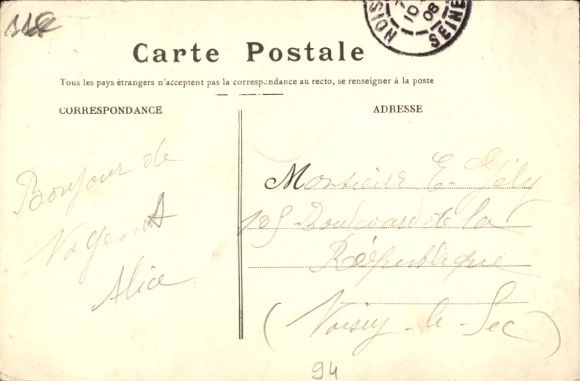 Carte Postale
NOIS
10
08
SEINE
Tous les pays étrangers n'acceptent pas la correspondance au recto, se renseigner à la poste
CORRESPONDANCE
ADRESSE
Bonjour de
Nogent
Alice
Monsieur E. Gély
105 Boulevard de la
République
(Noisy-le-Sec)
94